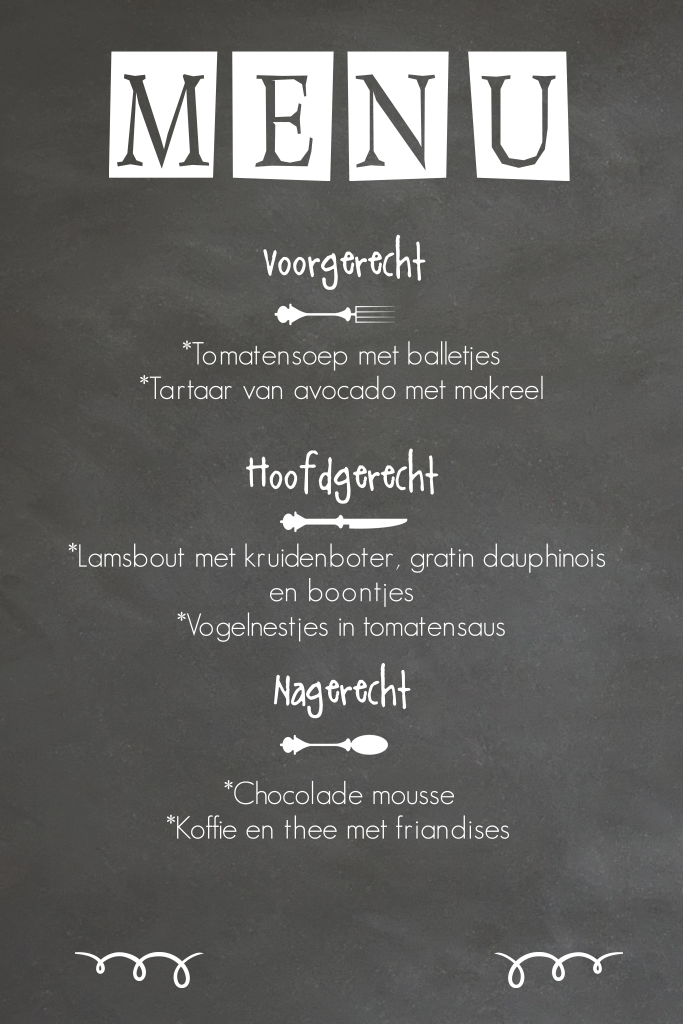 MENU
Voorgerecht
*Tomatensoep met balletjes
*Tartaar van avocado met makreel
Hoofdgerecht
*Lamsbout met kruidenboter, gratin dauphinois
en boontjes
*Vogelnestjes in tomatensaus
Nagerecht
*Chocolade mousse
*Koffie en thee met friandises